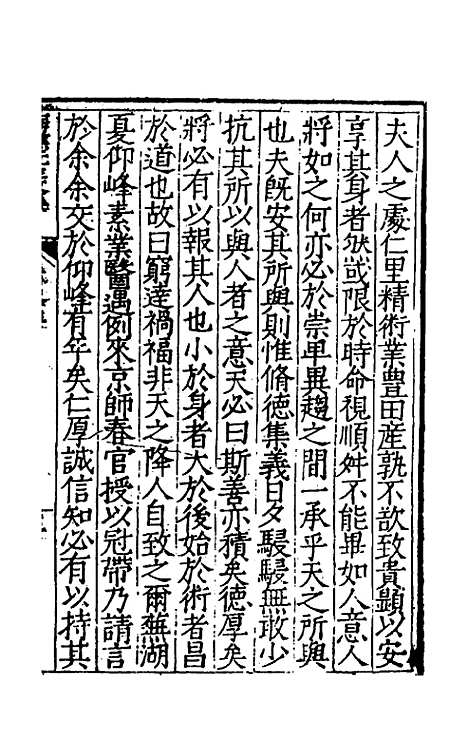 夫人之處仁里精術業豊田産孰不欲致貴顯以安
享其身者然或限於時命視順舛不能畢如人意人
將如之何亦必於崇卑異趨之間一承乎天之所與
也夫旣安其所與則惟脩德集義日夕駸駸無敢少
抗其所以與人者之意天必曰斯善亦積矣德厚矣
將必有以報其人也小於身者大於後始於術者昌
於道也故曰窮達禍福非天之降人自致之爾蕪湖
夏仰峰素業醫遇例來京師春官授以冠帶乃請言
於余余交於仰峰有年矣仁厚誠信知必有以持其